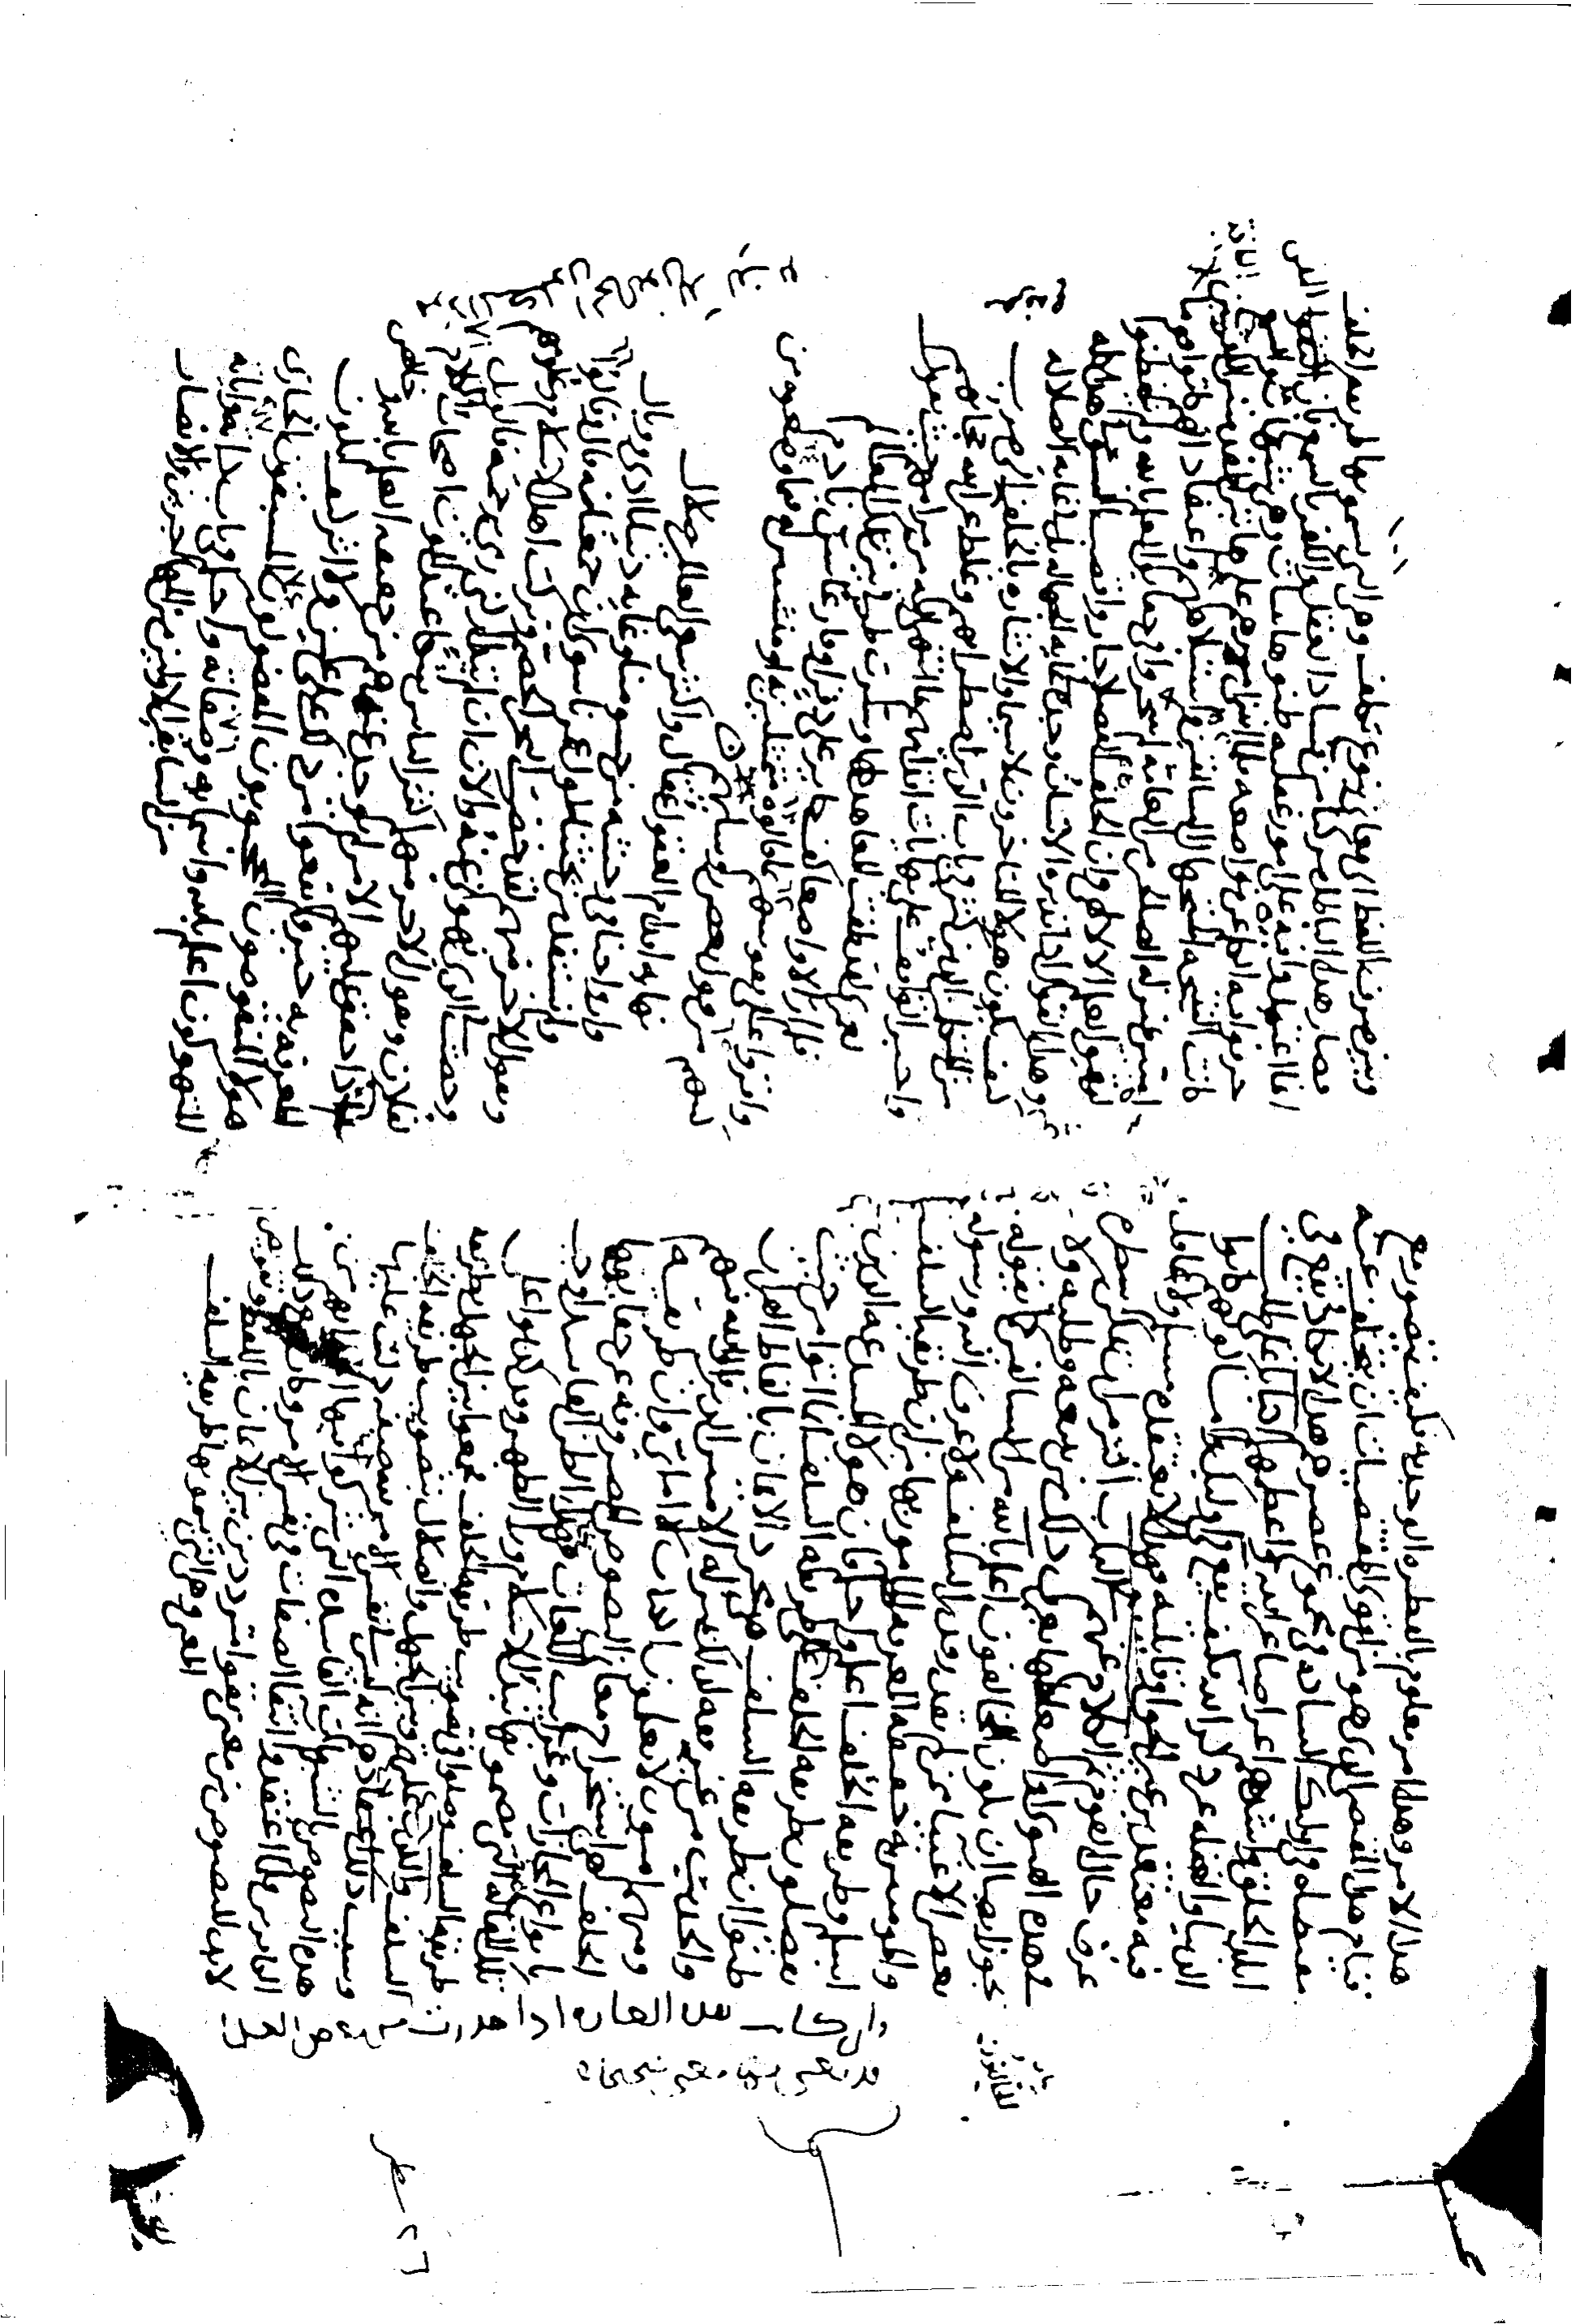 هذا الامر وهذا امر معلوم بالفطره الوجديه فكيف يتصور مع
قيام هذا المقتضي الذي هو من اقوى المقتضيات ان يتخلف عنه
مقتضاه في اولئك السادة في مجموع عصرهم هذا لا يكاد يقع في
ابلد الخلق واشدهم اعراضا عن الله واعظمهم اكبابا على طلب
الدنيا والغفله عن ذكر الله فكيف يقع في اولئك واما كونهم كانوا
فيه معتقدين غير الحق او قايليه فهذا لا يعتقده مسلم ولا عاقل
عرف حال القوم ثم الكلام عنهم في هذا الباب اكثر من ان يمكن سطره
في هذه الفتوى او اضعافها يعرف ذلك من تتبعه وطلبه ولا
يجوز ايضا ان يكون الخالفون اعلم من السالفين كما يقوله
بعض الاغبياء ممن لم يقدر قدر السلف ولا عرف الله ورسوله
والمومنين به حقيقه المعرفه المامور بها من ان طريقه السلف
اسلم وطريقه الخلف اعلم واحكم فان هولا المبتدعه الذين
يفضلون طريقه الخلف على طريقه السلف انما اتوا من حيث
ظنوا ان طريقه السلف هي مجرد الايمان بالفاظ القران
والحديث من غير فقه لذلك بمنزله الاميين الذين قال الله فيهم
ومنهم اميون لا يعلمون الكتاب الا اماني وان طريقه
الخلف هي استخراج معاني النصوص المصروفه عن حقايقها
بانواع المجازات وغرايب اللغات فهذا الظن الفاسد اوجب
تلك المقاله التي مضمونها نبذ الاسلام ورا الظهر وقد كذبوا على
طريقه السلف وضلوا في تصويب طريقه الخلف فجمعوا بين الجهل بطريقه
السلف والكذب عليهم وبين الجهل والضلال بتصويب طريقه الخلف
وسبب ذلك اعتقادهم انه ليس في نفس الامر صفه دلت عليها
هذه النصوص بالشبهات الفاسده التي شركوا فيها اخوانهم من
الكافرين فلما اعتقدوا انتفا الصفات في نفس الامر وكان مع ذلك
لابد للنصوص من معنى بقوا مترددين بين الايمان باللفظ وتفويض
المعنى وهي التي يسمونها طريقه السلف
وبين صرف اللفظ الى معان بنوع تكلف وهي التي يسمونها طريقه الخلف
فصار هذا الباطل مركبا من فساد العقل والكفر بالسمع فان النفي
انما اعتمدوا فيه على امور عقليه ظنوها بينات وهي شبهات والسمع
حرفوا فيه الكلم عن مواضعه فلما انبنى امرهم على هاتين المقدمتين
كانت النتيجه استجهال السابقين واستبلاههم واعتقاد انهم كانوا
اميين بمنزله الصالحين من العامه لم يتبحروا في حقايق العلم بالله ولم يتفطنوا
لدقيق العلم الالهي وان الخلف الفضلا حازوا قصب السبق في هذا كله
وهذا القول اذا تدبره الانسان وجده في غايه الجهاله بل في غايه الضلاله
كيف يكون هولا المتاخرون لا سيما والاشاره بالخلف الى ضرب
من المتكلمين الذين كثر في باب الدين اضطرابهم وغلظ عن الله حجابهم
واخبر الواقف على نهايات اقدامهم بما انتهى اليه من مرامهم حيث يقول
لعمري لقد طفت المعاهد كلها وسيرت طرفي بين تلك المعالم
فلم ار الا واضعا كف حاير على ذقن او قارعا سن نادم
واقروا على نفوسهم بما قالوه متمثلين به او منشئين له فيما صنفوه من
كتبهم كقول بعض روسايهم
نهايه اقدام العقول عقال واكثر سعي العالمين ضلال
وارواحنا في وحشه من جسومنا وغايه دنيانا اذى ووبال
ولم نستفد من بحثنا طول عمرنا سوى ان جمعنا فيه قيل وقالوا
ويقول الاخر منهم لقد خضت البحر الخضم وتركت اهل الاسلام وعلومهم
وخضت في الذي نهوني عنه والان ان لم يتداركني ربي برحمته فالويل
لفلان ويقول الاخر منهم اكثر الناس شكا عند الموت اصحاب الكلام
ثم اذا حقق عليهم الامر لم يوجد عندهم من حقيقه العلم بالله وخالص
المعرفه به خبر ولم يقعوا من ذلك على عين ولا اثر كيف يكون
هولا المنقوصون المحجوبون المفضولون المسبوقون الحيارى
المتهوكون اعلم بالله واسمايه وصفاته واحكم في باب اياته
من السابقين الاولين من المهاجرين والانصار